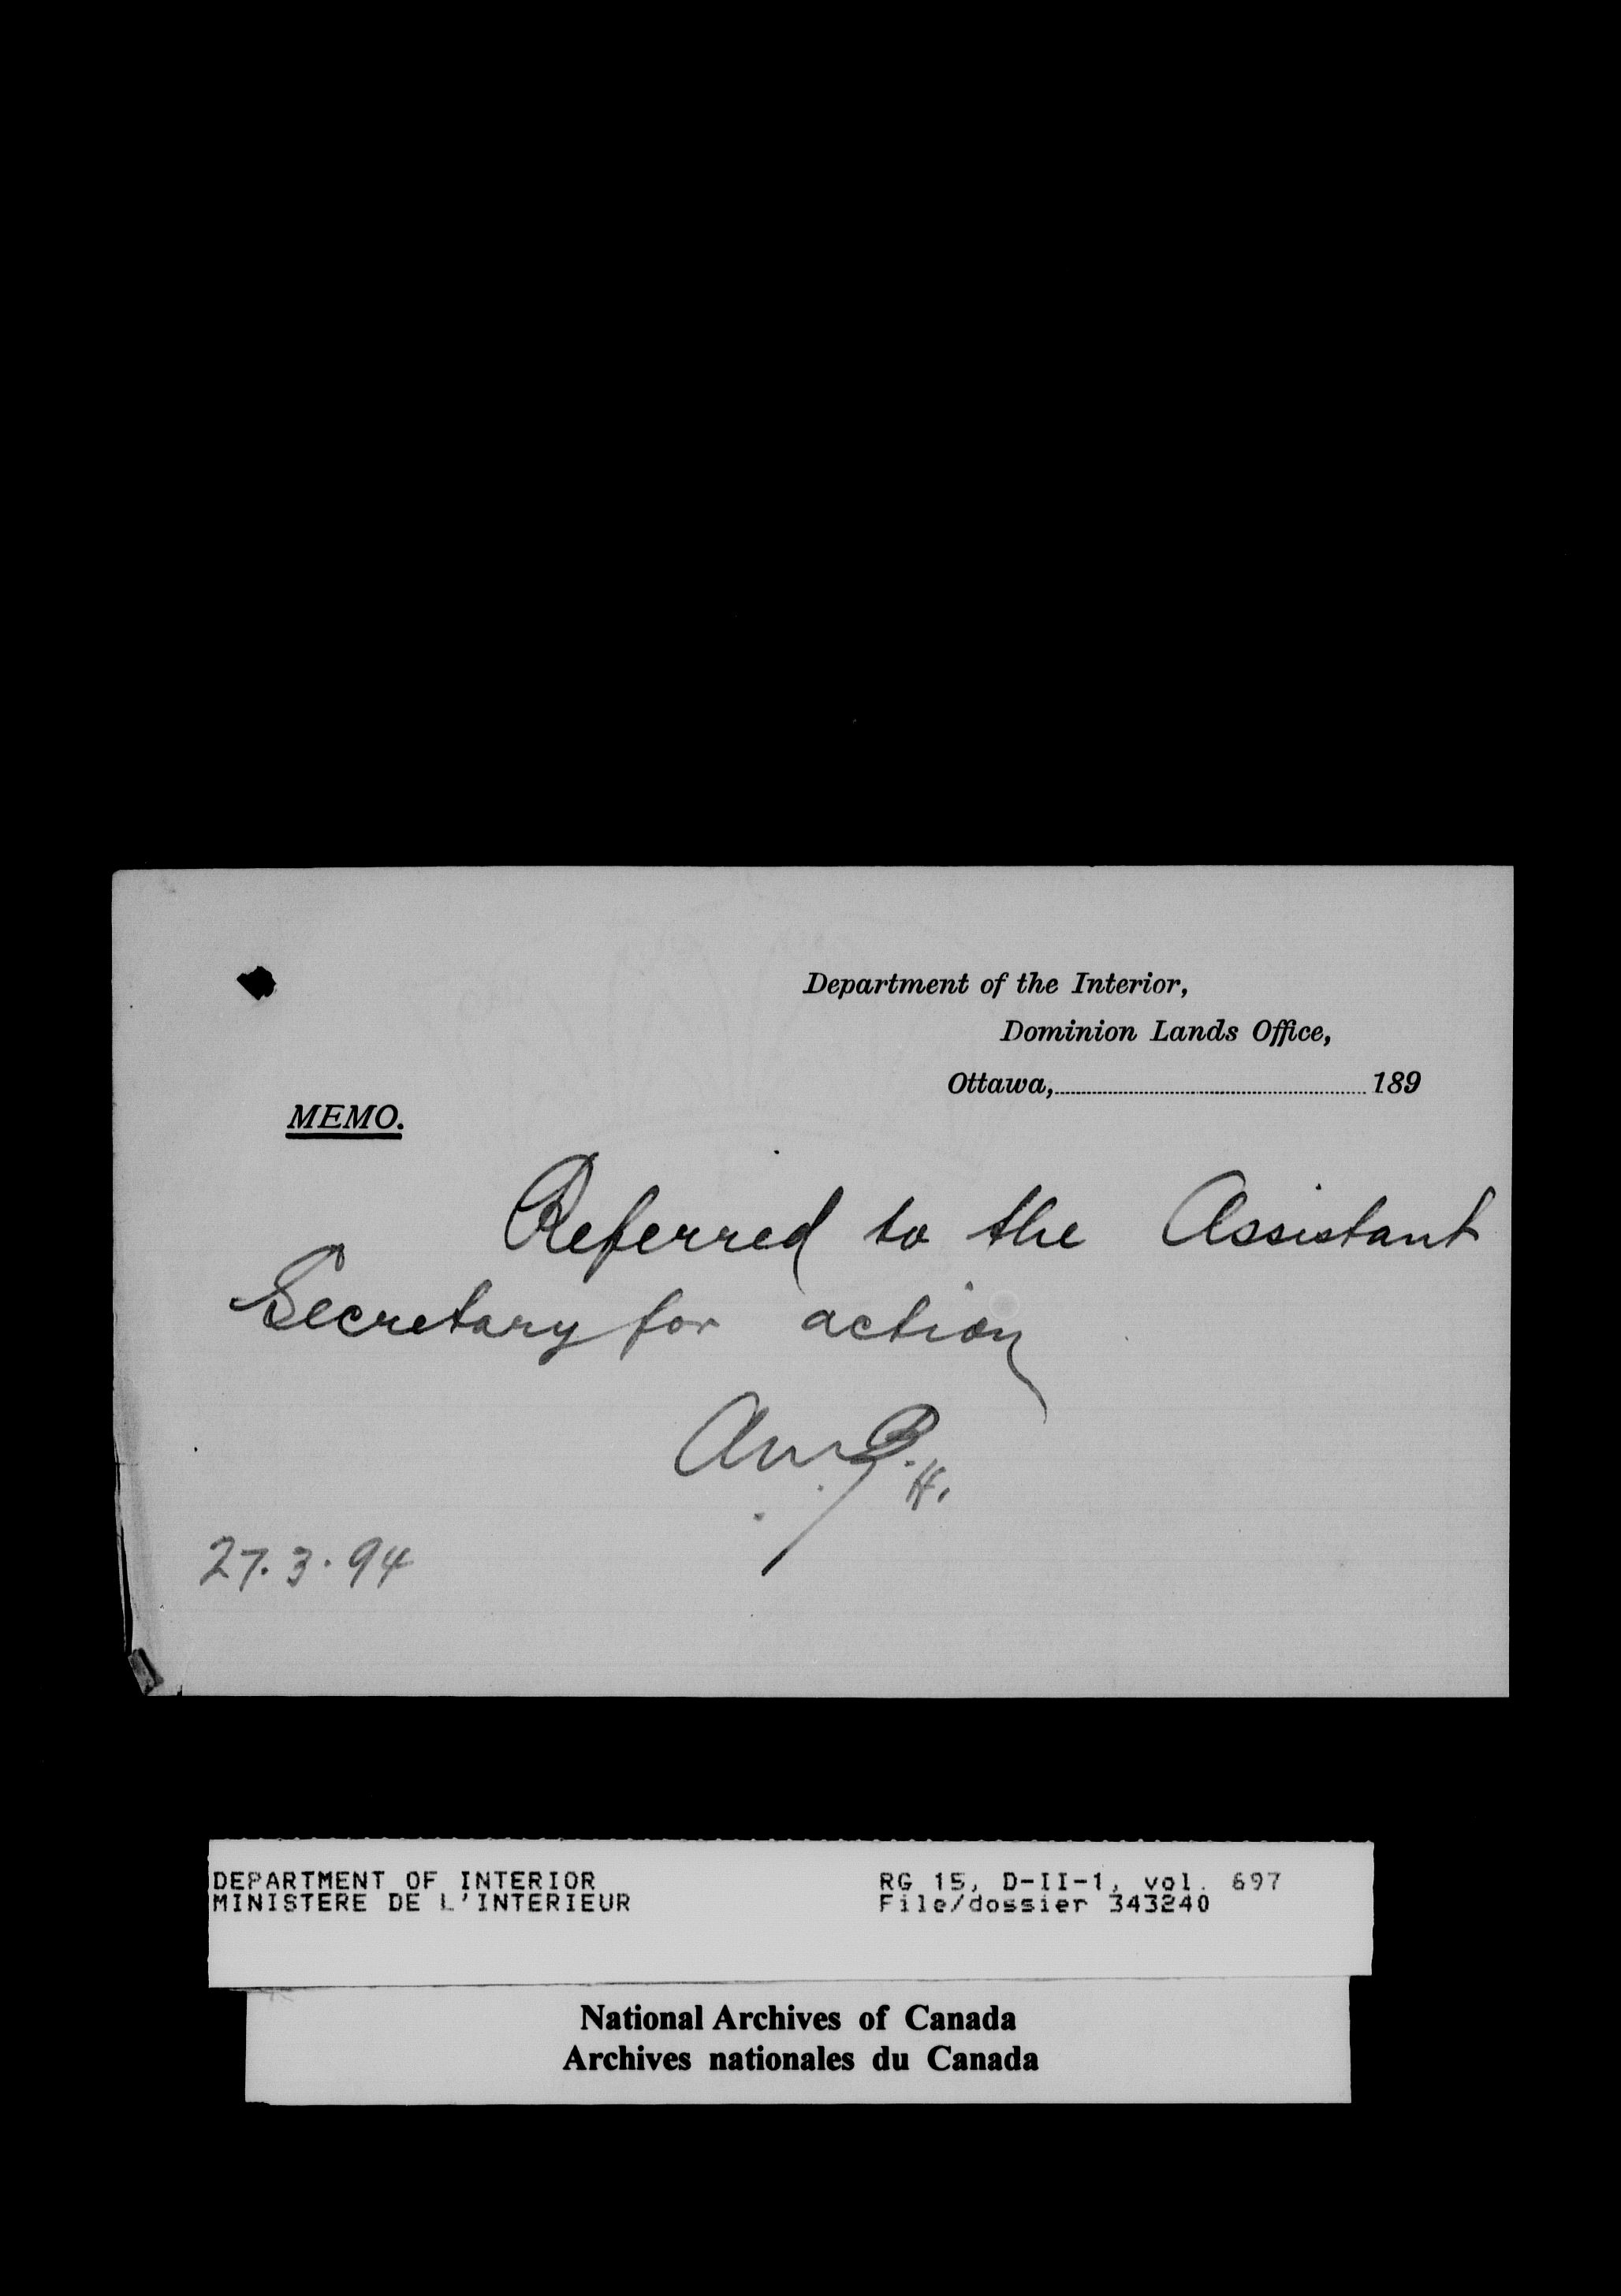 Department of the Interior,
Dominion Lands Office,
Ottawa, 189
MEMO.
Referred to the Assistant
Secretary for action
H.
27.3.94
DEPARTMENT OF INTERIOR
MINISTERE DE L'INTERIEUR
RG 15, D-II-1, vol. 697
File/dossier 343240
National Archives of Canada
Archives nationales du Canada